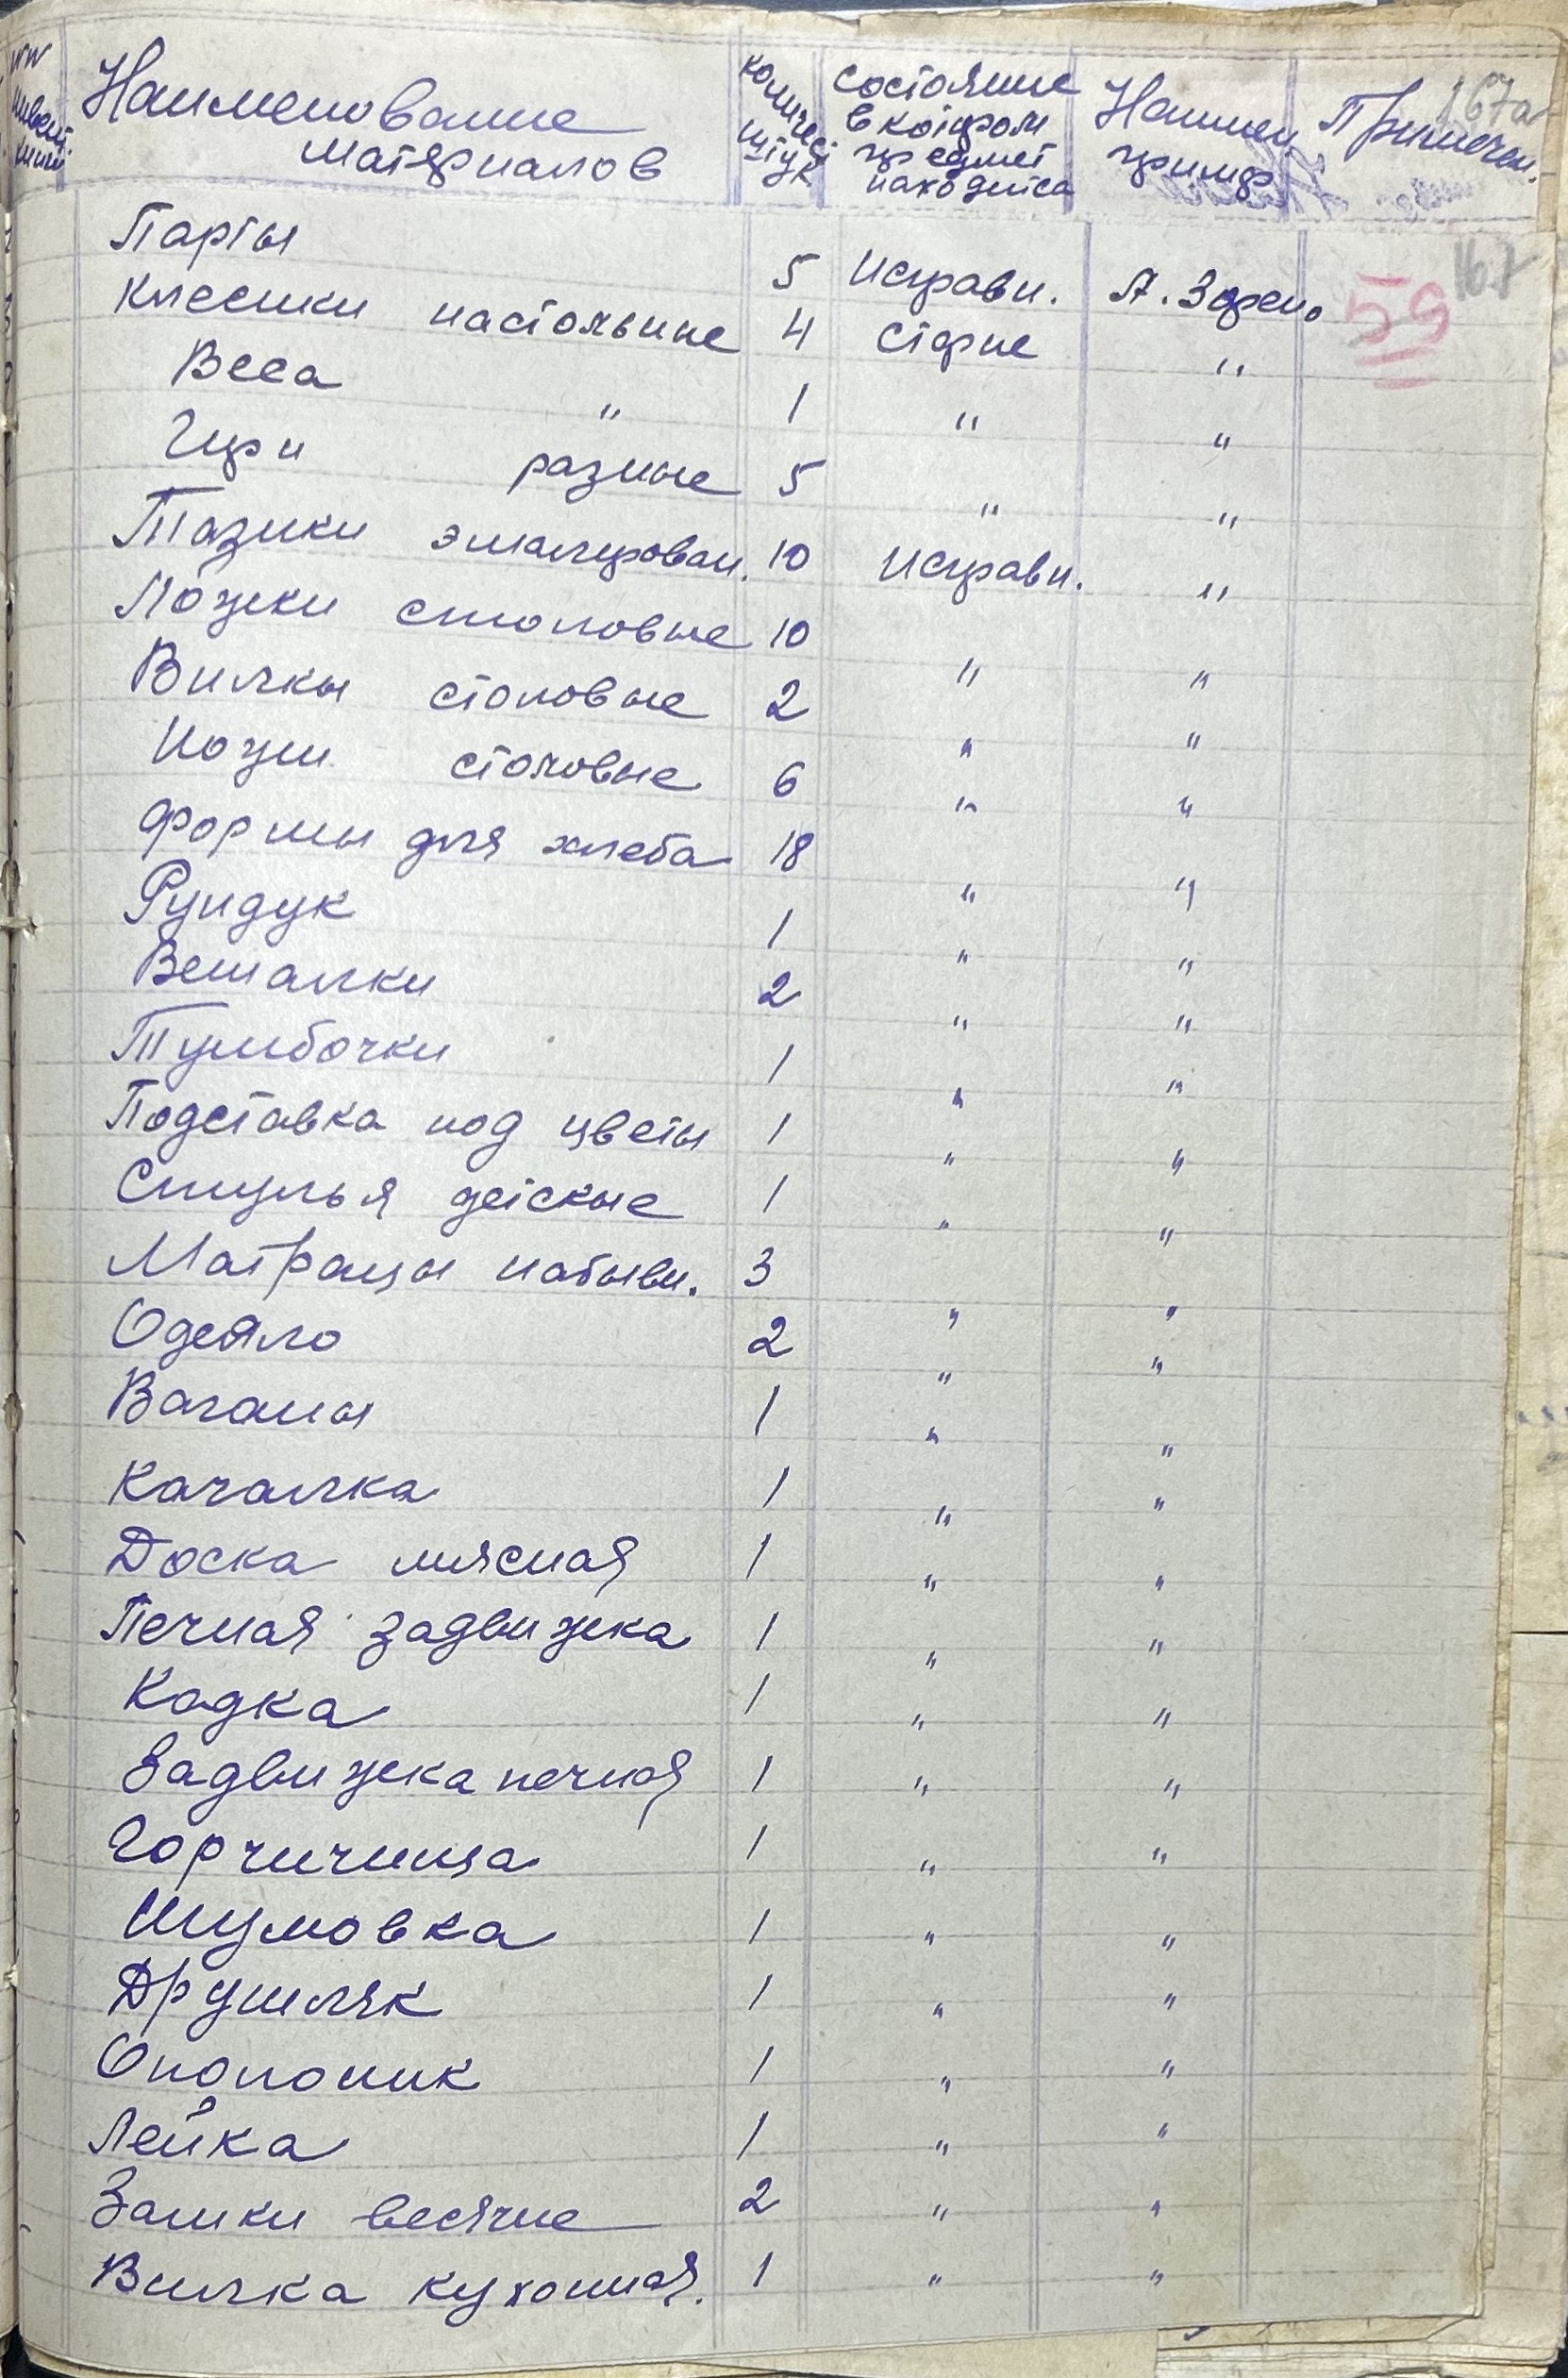 NN инвент. книги | Наименование материалов | Количест штук | Состояние в котором предмет находится | Наимен примир | Примечан.
167а
167
59
Парты 5 Исправн. А. Зорен.
Клеенки настольные 4 Старые "
Веса " 1 " "
Гири разные 5 " "
Тазики эмалирован. 10 Исправн. "
Ложки столовые 10 " "
Вилкы столовые 2 " "
Ножи столовые 6 " "
Формы для хлеба 18 " "
Рундук 1 " "
Вешалки 2 " "
Тумбочки 1 " "
Подставка под цветы 1 " "
Стулья детские 1 " "
Матрацы набывн. 3 " "
Одеяло 2 " "
Ваганы 1 " "
Качалка 1 " "
Доска мясная 1 " "
Печная задвижка 1 " "
Кадка 1 " "
Задвижка печная 1 " "
Горчичница 1 " "
Шумовка 1 " "
Друшляк 1 " "
Ополоник 1 " "
Лейка 1 " "
Замки весячие 2 " "
Вилка кухонная. 1 " "